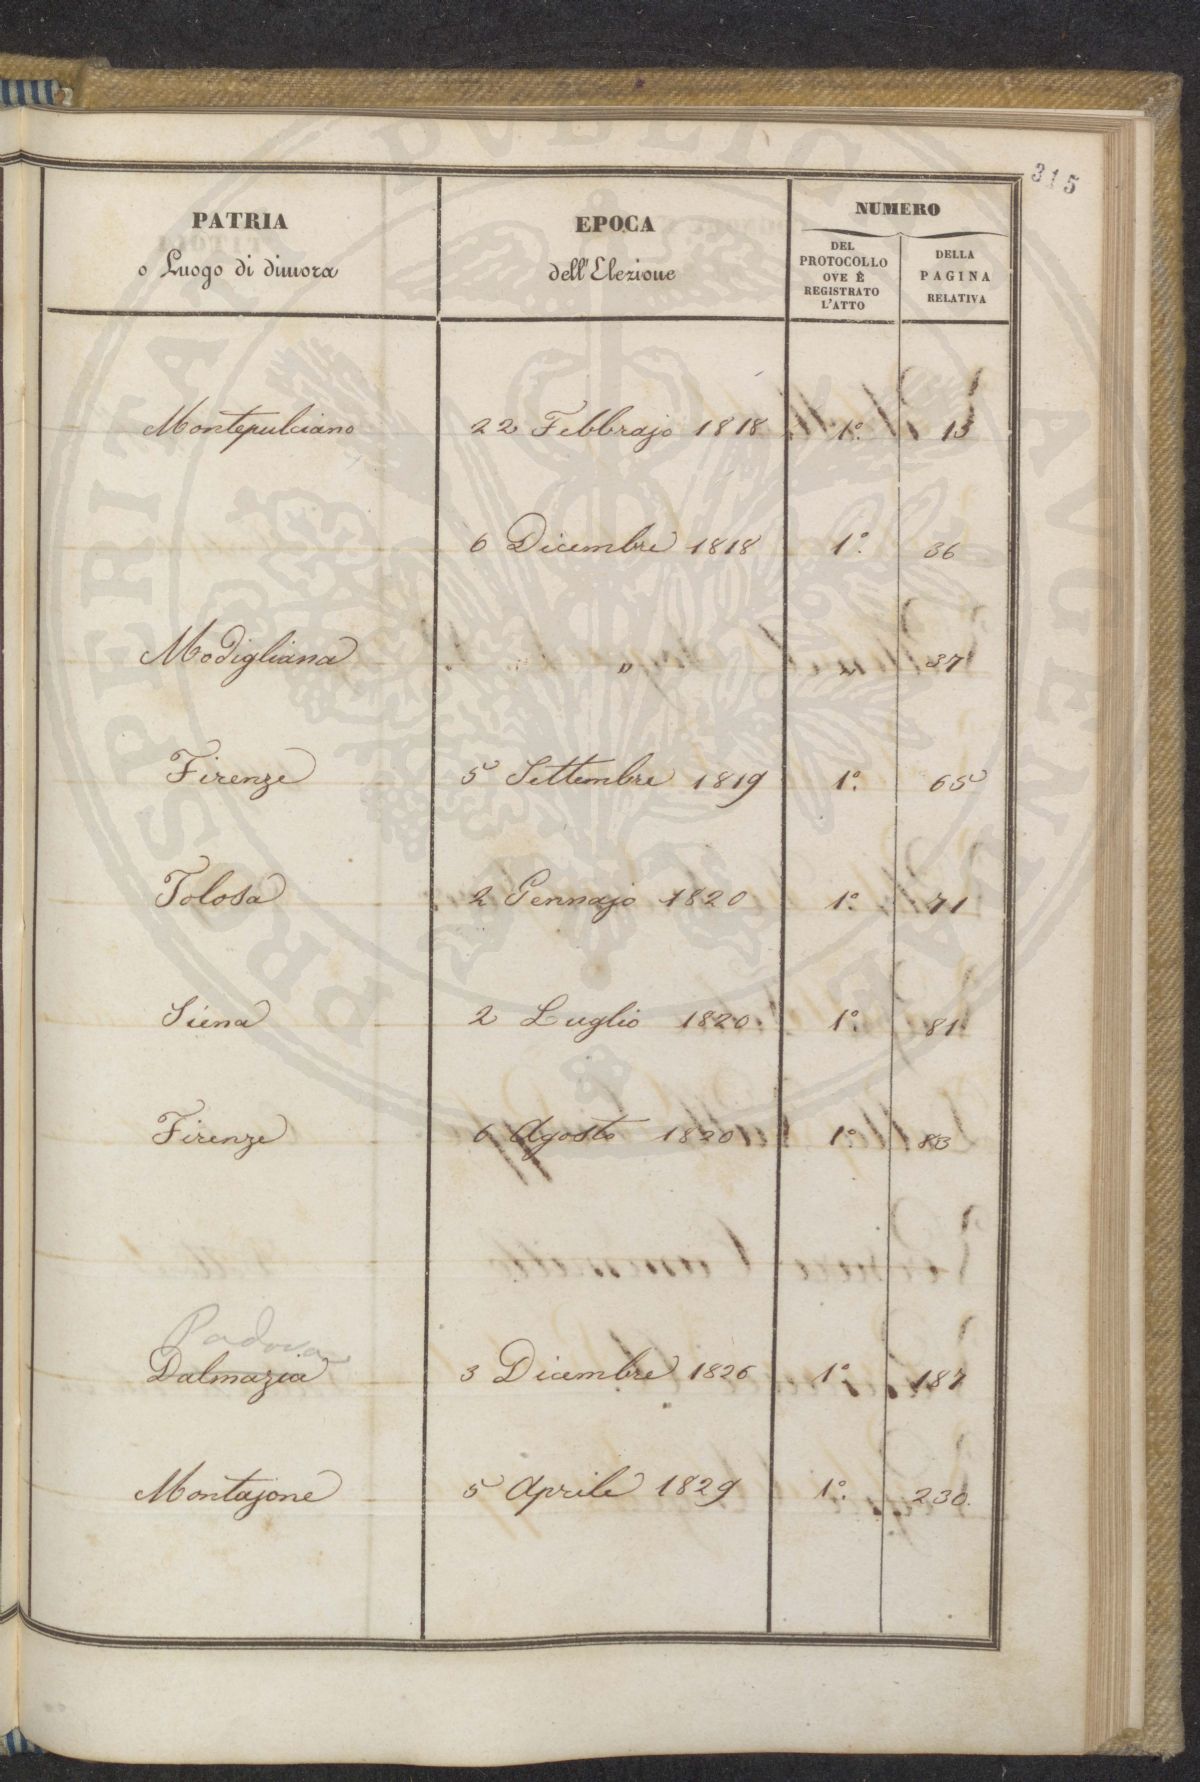 315
PATRIA
o Luogo di dimora
EPOCA
dell'Elezione
NUMERO
DEL
PROTOCOLLO
OVE È
REGISTRATO
L'ATTO
DELLA
PAGINA
RELATIVA
Montepulciano 22 Febbrajo 1818 1º. 13
6 Dicembre 1818 1º. 36
Modigliana " " 37
Firenze 5 Settembre 1819 1º. 65
Tolosa 2 Gennajo 1820 1º. 71
Siena 2 Luglio 1820 1º. 81
Firenze 6 Agosto 1820 1º. 83
Padova
Dalmazia 3 Dicembre 1826 1º. 187
Montajone 5 Aprile 1829 1º. 230.
PROSPERITATI PUBLICAE AUGENDAE